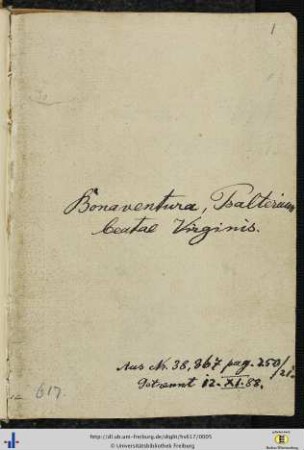 1
Bonaventura, Psalterium
beatae Virginis.
Aus Nr. 38, 367 pag. 250/
21.
Getrennt 12. XI. 88.
617.
http://dl.ub.uni-freiburg.de/diglit/hs617/0005
© Universitätsbibliothek Freiburg